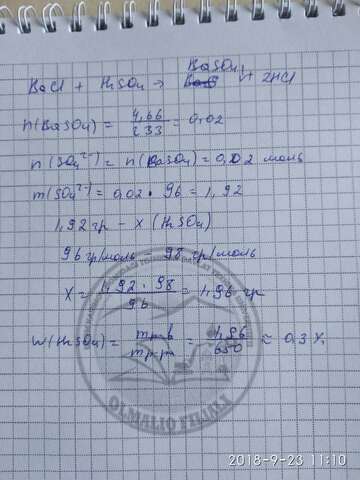 BaCl + H₂SO₄ → BaSO₄↓ + 2HCl
n(BaSO₄) = 4,66 / 233 = 0,02
n(SO₄²⁻) = n(BaSO₄) = 0,02 моль
m(SO₄²⁻) = 0,02 · 96 = 1,92
1,92 гр – x (H₂SO₄)
96 гр/моль – 98 гр/моль
X = 1,92 · 98 / 96 = 1,96 гр
W(H₂SO₄) = m р-в / m р-р = 1,96 / 650 ≈ 0,3 %
OLMALIQ FILIALI
2018-9-23 11:10